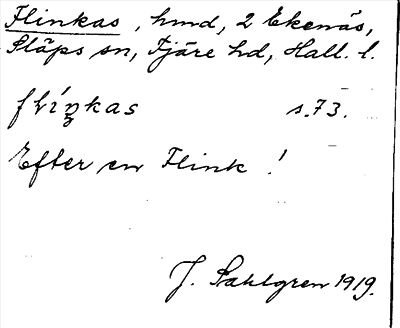 Flinkas, hmd, 2 Ekenäs,
Släps sn, Fjäre hd, Hall. l.
flíŋkas s. 73.
Efter en Flink!
J. Sahlgren 1919.